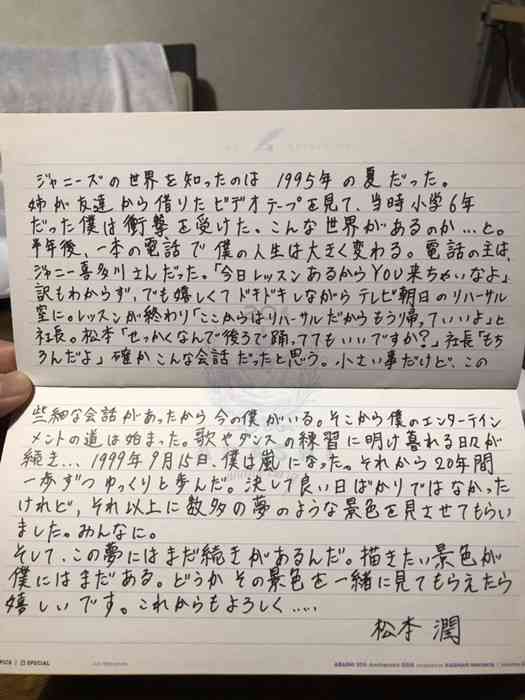 ジャニーズの世界を知ったのは 1995年の夏だった。
姉が友達から借りたビデオテープを見て、当時小学6年
だった僕は衝撃を受けた。こんな世界があるのか…と。
半年後、一本の電話で僕の人生は大きく変わる。電話の主は、
ジャニー喜多川さんだった。「今日レッスンあるからYOU来ちゃいなよ」
訳もわからず、でも嬉しくてドキドキしながらテレビ朝日のリハーサル
室に。レッスンが終わり「ここからはリハーサルだからもう帰っていいよ」と
社長。松本「せっかくなんで後ろで踊っててもいいですか?」社長「もち
ろんだよ」確かこんな会話だったと思う。小さい事だけど、この
些細な会話があったから今の僕がいる。そこから僕のエンターテイン
メントの道は始まった。歌やダンスの練習に明け暮れる日々が
続き… 1999年9月15日、僕は嵐になった。それから20年間
一歩ずつゆっくりと歩んだ。決して良い日ばかりではなかった
けれど、それ以上に数多の夢のような景色を見させてもらい
ました。みんなに。
そして、この夢にはまだ続きがあるんだ。描きたい景色が
僕にはまだある。どうかその景色を一緒に見てもらえたら
嬉しいです。これからもよろしく……
松本 潤
SPECIAL